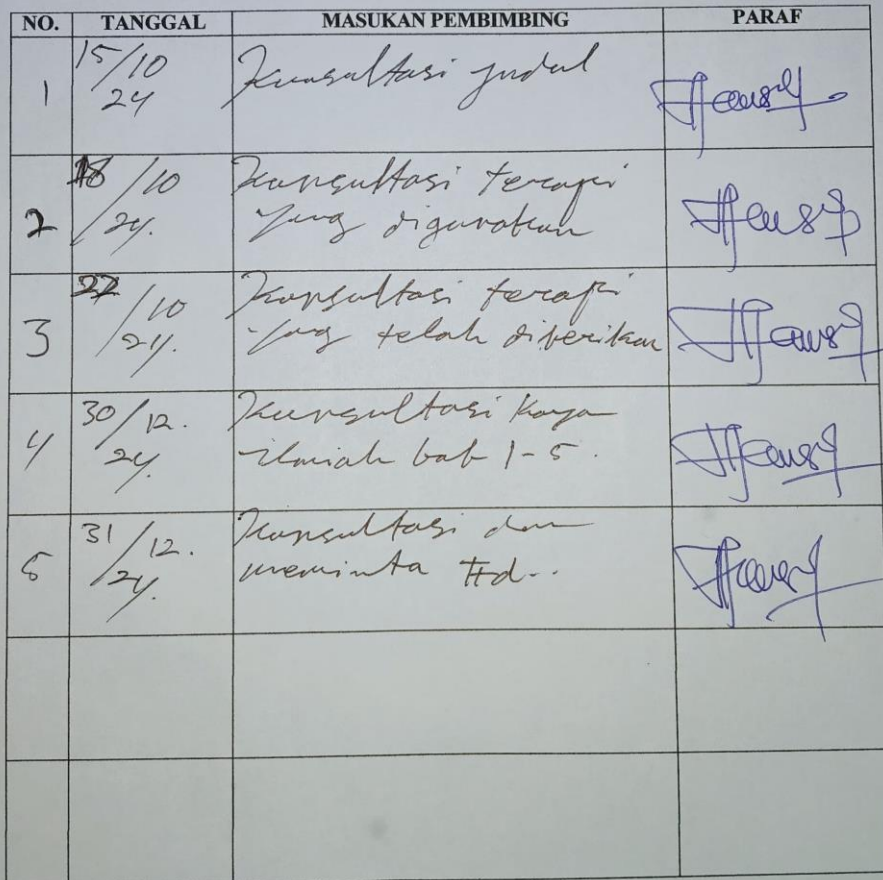 NO. TANGGAL MASUKAN PEMBIMBING PARAF
1 15/10 Konsultasi judul
24
18/10 Konsultasi terapi
2 24. yang digunakan
22/10 Konsultasi terapi
3 24. yang telah diberikan
30/12. Konsultasi Karya
4 24. ilmiah bab 1-5.
31/12. Konsultasi dan
5 24. meminta ttd..